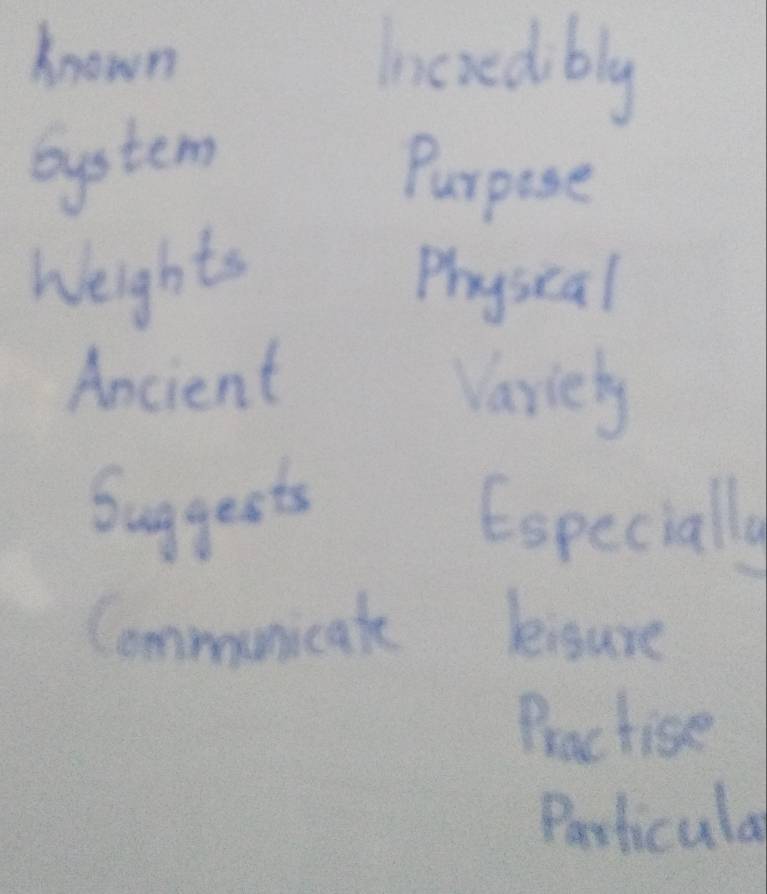 Known
System
Weights
Ancient
Suggests
Communicate
Incredibly
Purpose
Physical
Variety
Especially
leisure
Practise
Particula